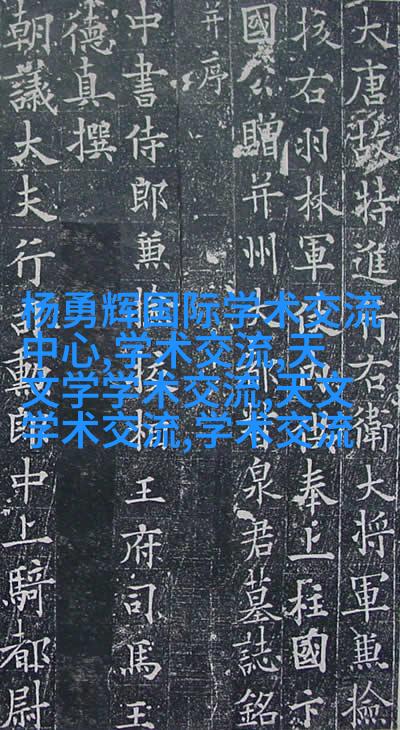 大唐故特進行右衛大將軍兼撿
挍右羽林軍仗內供奉上柱國卞
國公贈并州大都督泉君墓誌銘
并序
中書侍郎兼撿挍相王府司馬王
德真撰
朝議大夫行司勳郎中上騎都尉
杨勇辉国际学术交流
中心,学术交流,天
文学学术交流,天文
学术交流,学术交流